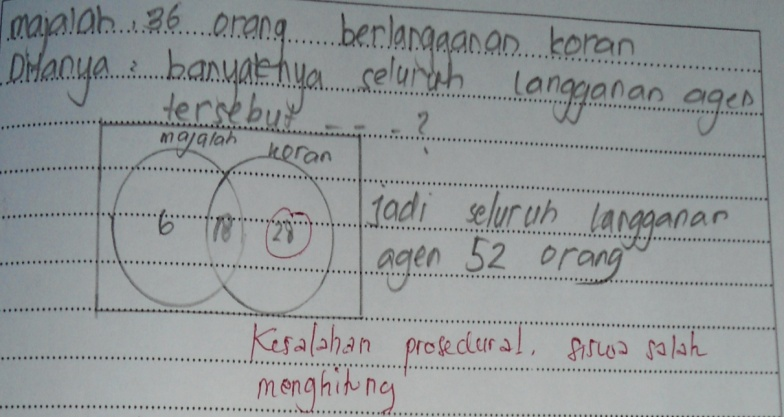 majalah. 36 orang berlangganan koran
Ditanya : banyaknya seluruh langganan agen
tersebut - - - ?
majalah
koran
6 18 28
jadi seluruh langganan
agen 52 orang
Kesalahan prosedural, siswa salah
menghitung